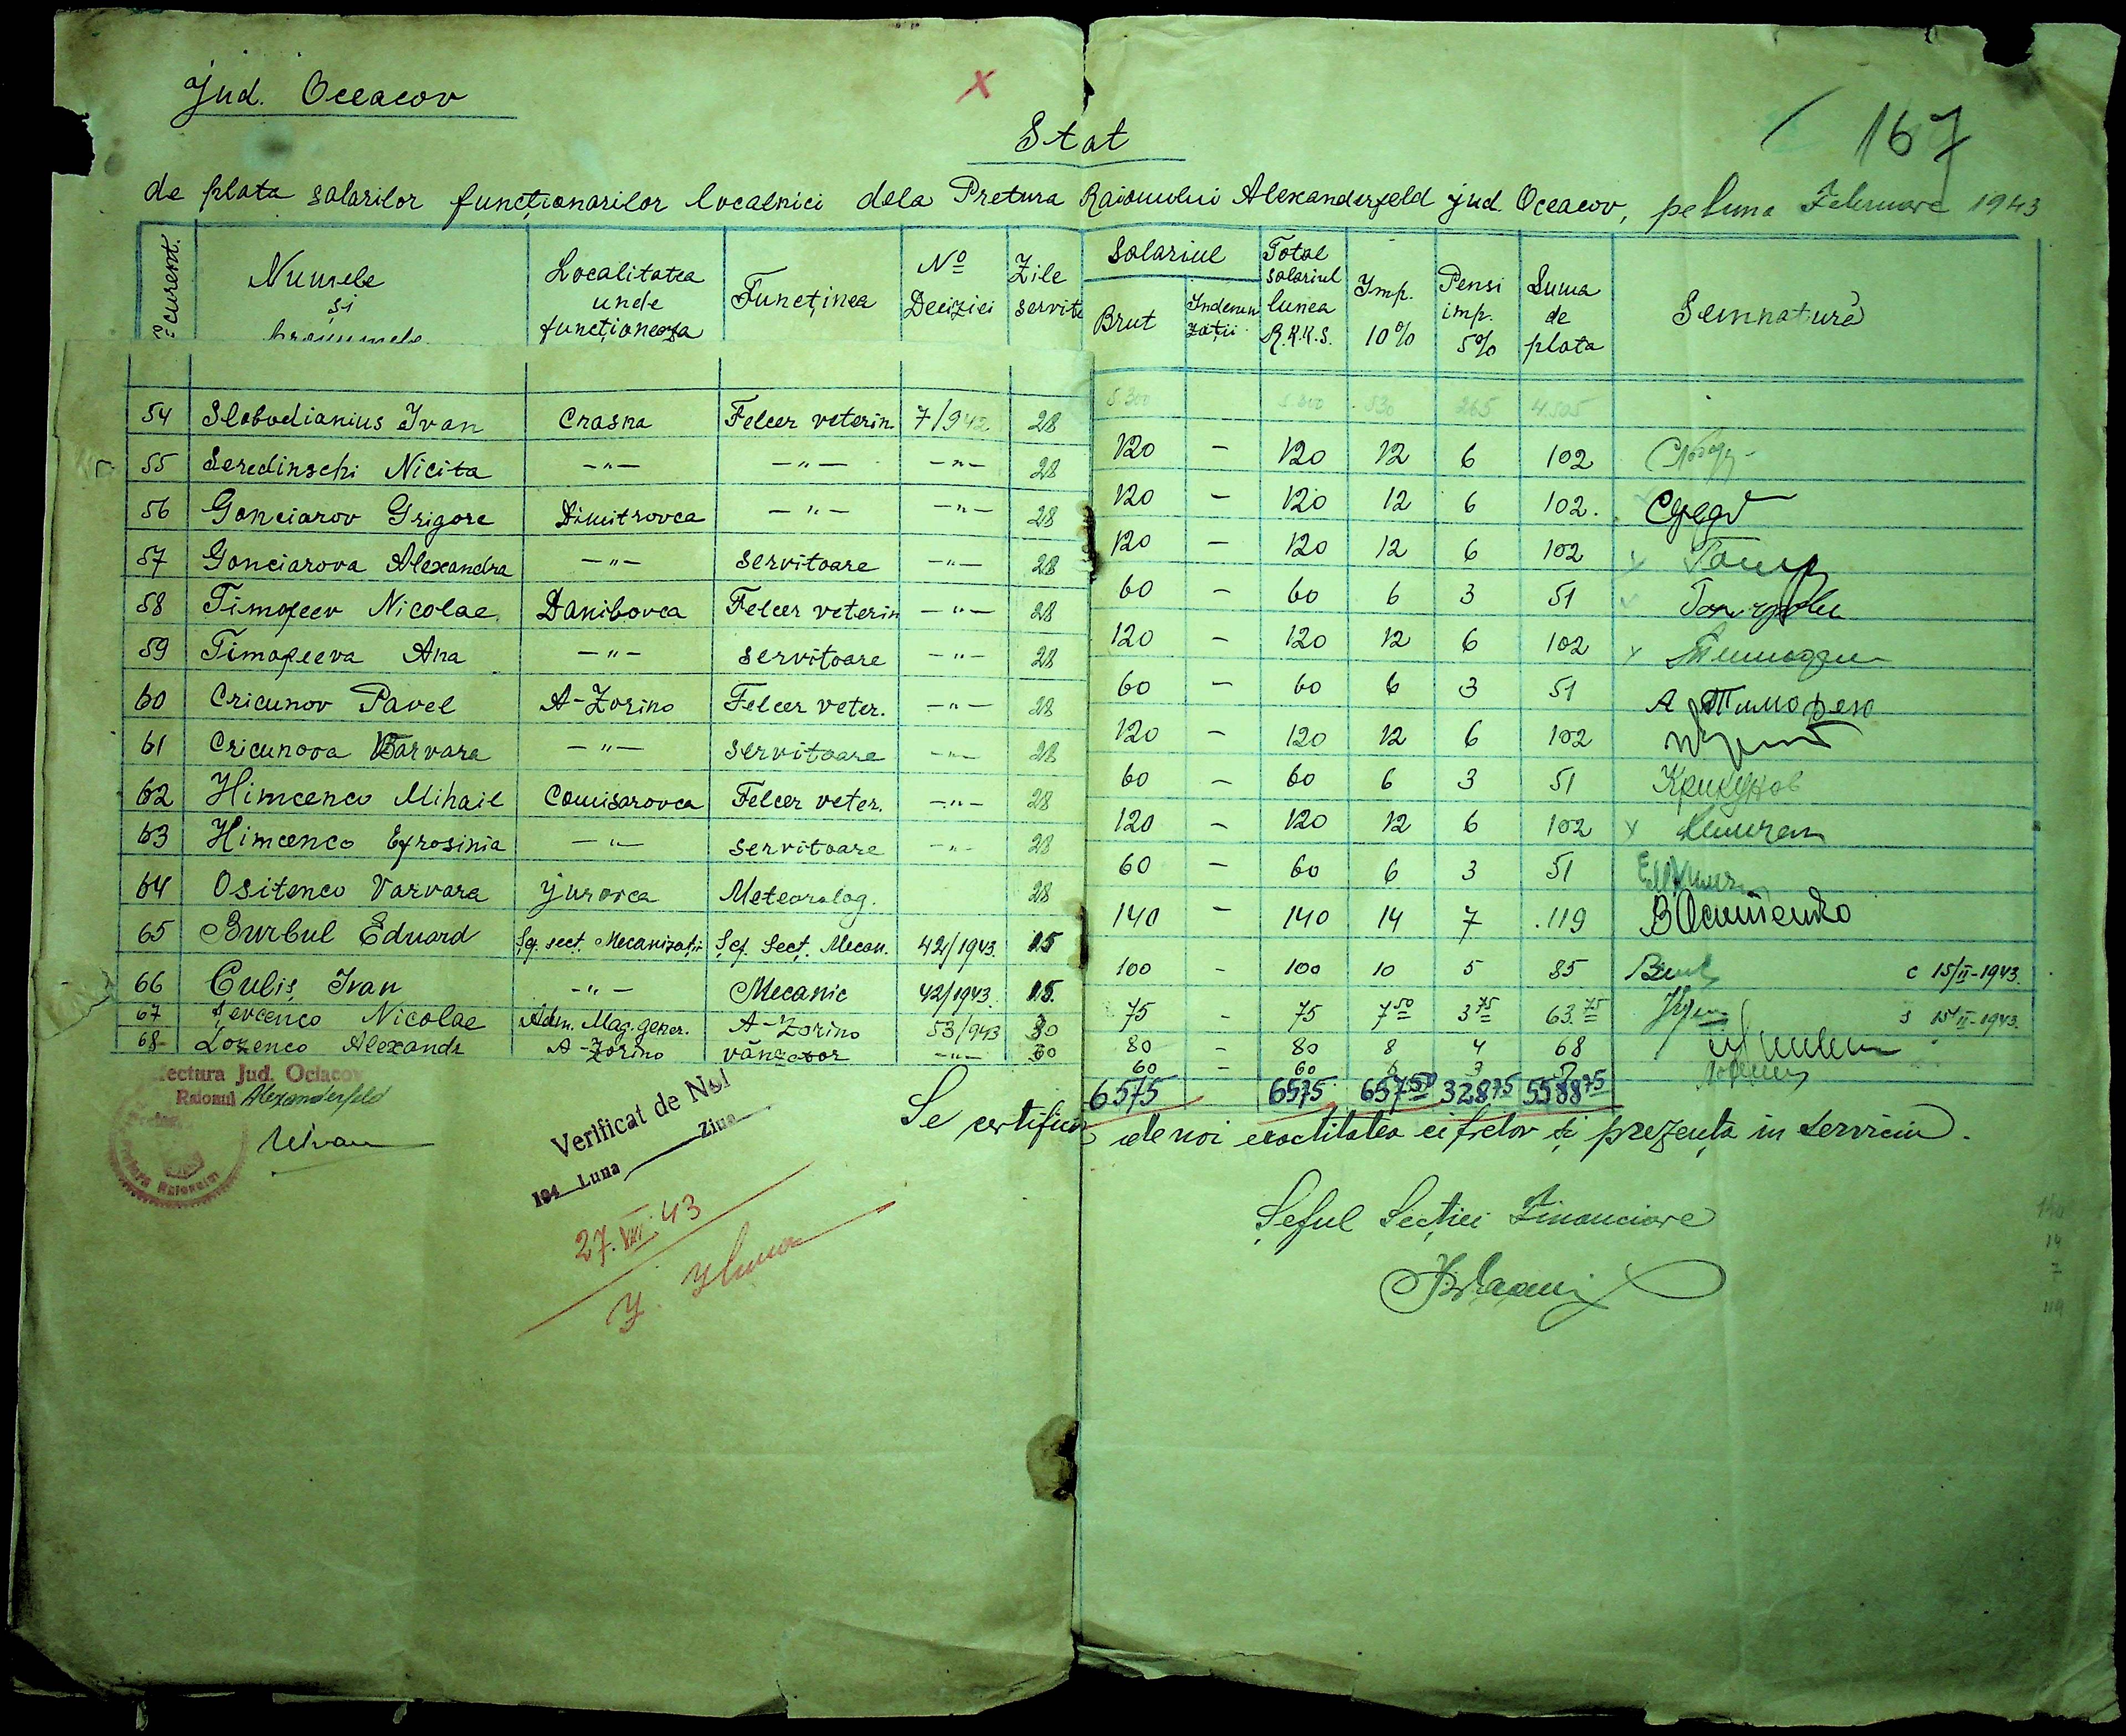 Jud. Oceacov
X
167
Stat
de plata salarilor funcționarilor localnici dela Pretura Raionului Alexanderfeld jud. Oceacov, pe luna Februare 1943
curent. Numele și Localitatea unde funcționeaza Funcținea Nº Deciziei Zile servite Salariul Brut Indemnizații Total salariul lunea R.K.K.S. Imp. 10% Pensi imp. 5% Suma de plata Semnatura
5300 5300 530 265 4505
54 Slobodianius Ivan Crasna Felcer veterin. 7/942 28 120 - 120 12 6 102
55 Seredinschi Nicita -"- -"- -"- 28 120 - 120 12 6 102.
56 Gonciarov Grigore Dimitrovca -"- -"- 28 120 - 120 12 6 102
57 Gonciarova Alexandra -"- servitoare -"- 28 60 - 60 6 3 51
58 Timofeev Nicolae Danibovca Felcer veterin -"- 28 120 - 120 12 6 102
59 Timofeeva Ana -"- servitoare -"- 28 60 - 60 6 3 51 А Тимофею
60 Cricunov Pavel A-Zorino Felcer veter. -"- 28 120 - 120 12 6 102
61 Cricunova Varvara -"- servitoare -"- 28 60 - 60 6 3 51 Крикунов
62 Himcenco Mihail Comisarovca Felcer veter. -"- 28 120 - 120 12 6 102
63 Himcenco Efrosinia -"- servitoare -"- 28 60 - 60 6 3 51
64 Ositenco Varvara Jurovca Meteorolog. 28 140 - 140 14 7 119 В Осипенко
65 Burbul Eduard Șef. sect. Mecanizații Șef. Sect. Mecan. 42/1943. 15 100 - 100 10 5 85 c 15/II-1943.
66 Culiș Ivan -"- Mecanic 42/1943. 15. 75 - 75 7 50 3 75 63. 75 15/II-1943.
67 Șevcenco Nicolae Adm. Mag. gener. A-Zorino 53/943 80 - 80 8 4 68
68 Lozenco Alexandr A-Zorino vânzator -"- 60 - 60
6575 6575 657 50 328 75 5588 75
Se certifica de noi exactitatea cifrelor și prezența in serviciu.
Jud. Ociacov
Raionul Alexanderfeld
Verificat de Noi
194 Luna Ziua
27.VII.43
Șeful Secției Financiare
14
7
119